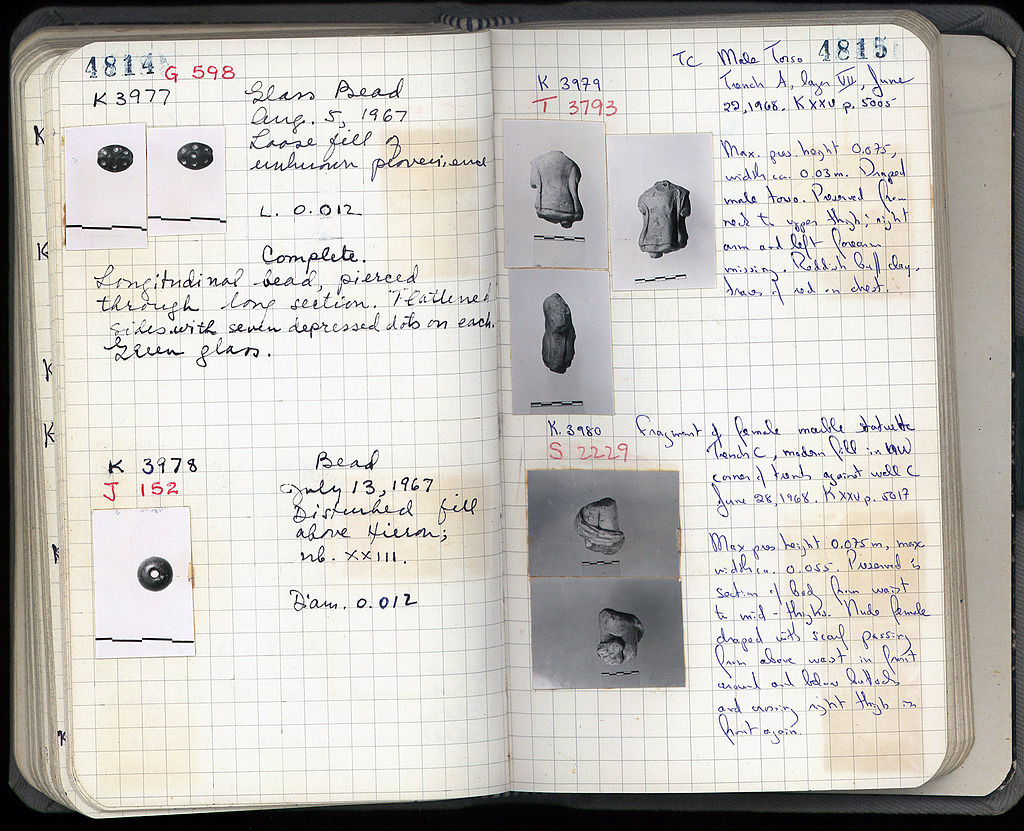 4814
G 598
K 3977
Glass Bead
Aug. 5, 1967
Loose fill of
unknown provenience
L. 0.012
Complete.
Longitudinal bead, pierced
through long section. Flattened
sides with seven depressed dots on each.
Green glass.
K 3978
J 152
Bead
July 13, 1967
Disturbed fill
above Hieron;
nb. XXIII.
Diam. 0.012
4815
K 3979
T 3793
TC Male Torso
Trench A, layer VII, June
22, 1968. K XXV p. 5005
Max. pres. height 0.075,
width ca. 0.03 m. Draped
male torso. Preserved from
neck to upper thigh; right
arm and left forearm
missing. Reddish buff clay,
traces of red on chest.
K. 3980
S 2229
Fragment of female marble statuette
Trench C, modern fill in NW
corner of trench against wall C
June 28, 1968. K XXV p. 5017
Max pres. height 0.075 m, max
width ca. 0.055. Preserved is
section of body from waist
to mid-thighs. Nude female
draped with scarf passing
from above waist in front
around and below buttocks
and crossing right thigh in
front again.
K
K
K
K
K
K